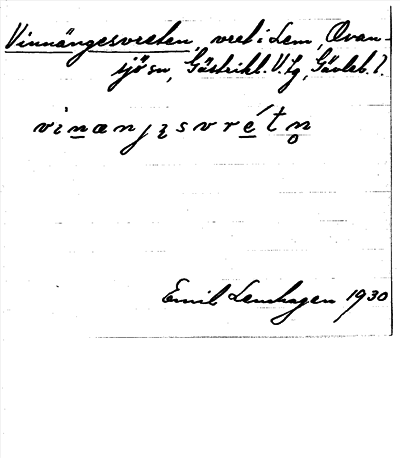 Vinnängesvreten, vret i Lem, Ovan-
sjö sn, Gästrikl. V. tg, Gävleb. l.
vinænjɩsvrétn̥
Emil Lenhagen 1930